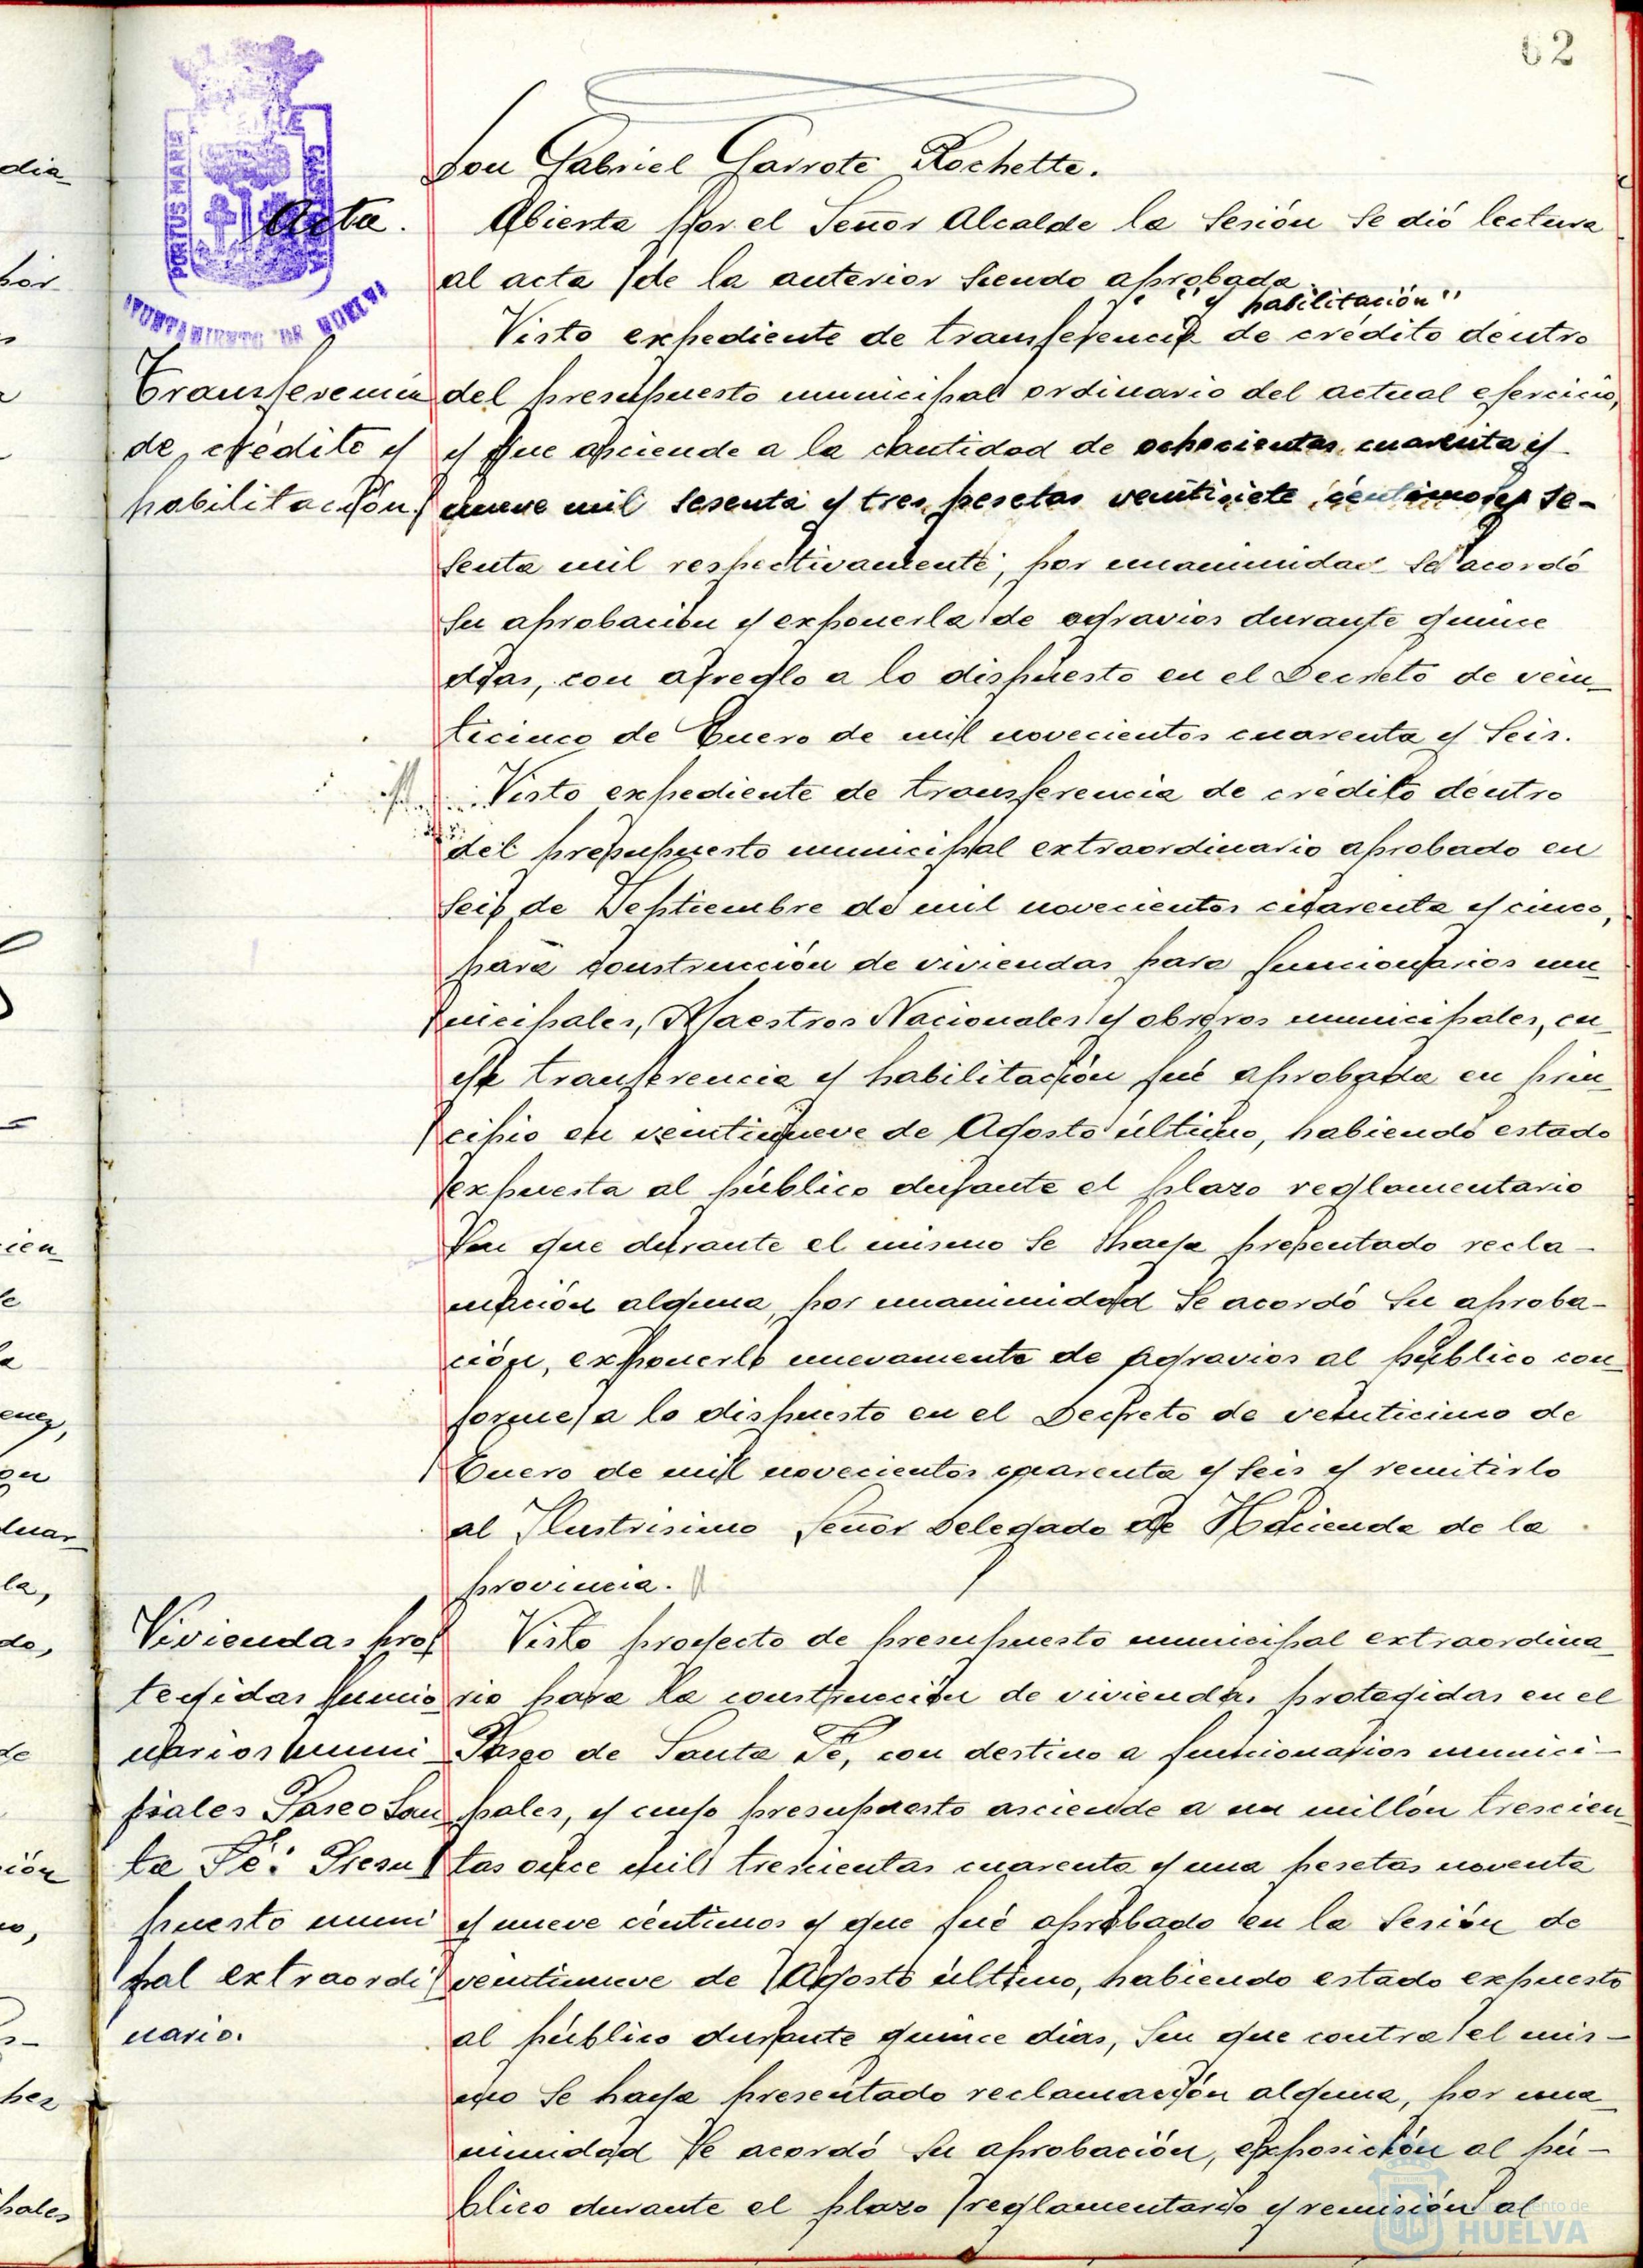 62
Don Gabriel Garrote Rochette.
Acta.
Abierta por el Señor Alcalde la Sesión se dió lectura
al acta de la anterior siendo aprobada.
" y habilitación "
Visto expediente de transferencia de crédito dentro
del presupuesto municipal ordinario del actual ejercicio,
y que asciende a la cantidad de ochocientas cuarenta y
nueve mil sesenta y tres pesetas veintisiete céntimos y se-
senta mil respectivamente, por unanimidad se acordó
su aprobación y exponerla de agravios durante quince
días, con arreglo a lo dispuesto en el Decreto de vein-
ticinco de Enero de mil novecientos cuarenta y seis.
Transferencia
de crédito y
habilitación.
Visto expediente de transferencia de crédito dentro
del presupuesto municipal extraordinario aprobado en
seis de Septiembre de mil novecientos cuarenta y cinco,
para construcción de viviendas para funcionarios mu-
nicipales, Maestros Nacionales y obreros municipales, cu-
ya transferencia y habilitación fué aprobada en prin-
cipio en veintinueve de Agosto último, habiendo estado
expuesta al público durante el plazo reglamentario
sin que durante el mismo se haya presentado recla-
mación alguna, por unanimidad se acordó su aproba-
ción, exponerlo nuevamente de agravios al público con-
forme a lo dispuesto en el Decreto de veinticinco de
Enero de mil novecientos cuarenta y seis y remitirlo
al Ilustrisimo Señor Delegado de Hacienda de la
provincia.
Viviendas pro-
tegidas funcio-
narios muni-
pales Paseo San-
ta Fé. Presu-
puesto muni
pal extraordi-
nario.
Visto proyecto de presupuesto municipal extraordina-
rio para la construcción de viviendas protegidas en el
Paseo de Santa Fé, con destino a funcionarios munici-
pales, y cuyo presupuesto asciende a un millón trescien-
tas once mil trescientas cuarenta y una pesetas noventa
y nueve céntimos y que fué aprobado en la Sesión de
veintinueve de Agosto último, habiendo estado expuesto
al público durante quince días, sin que contra el mis-
mo se haya presentado reclamación alguna, por una-
nimidad se acordó su aprobación, exposición al pú-
blico durante el plazo reglamentario y remisión al
PORTUS MARIS
AYUNTAMIENTO DE HUELVA
Ayuntamiento de
HUELVA